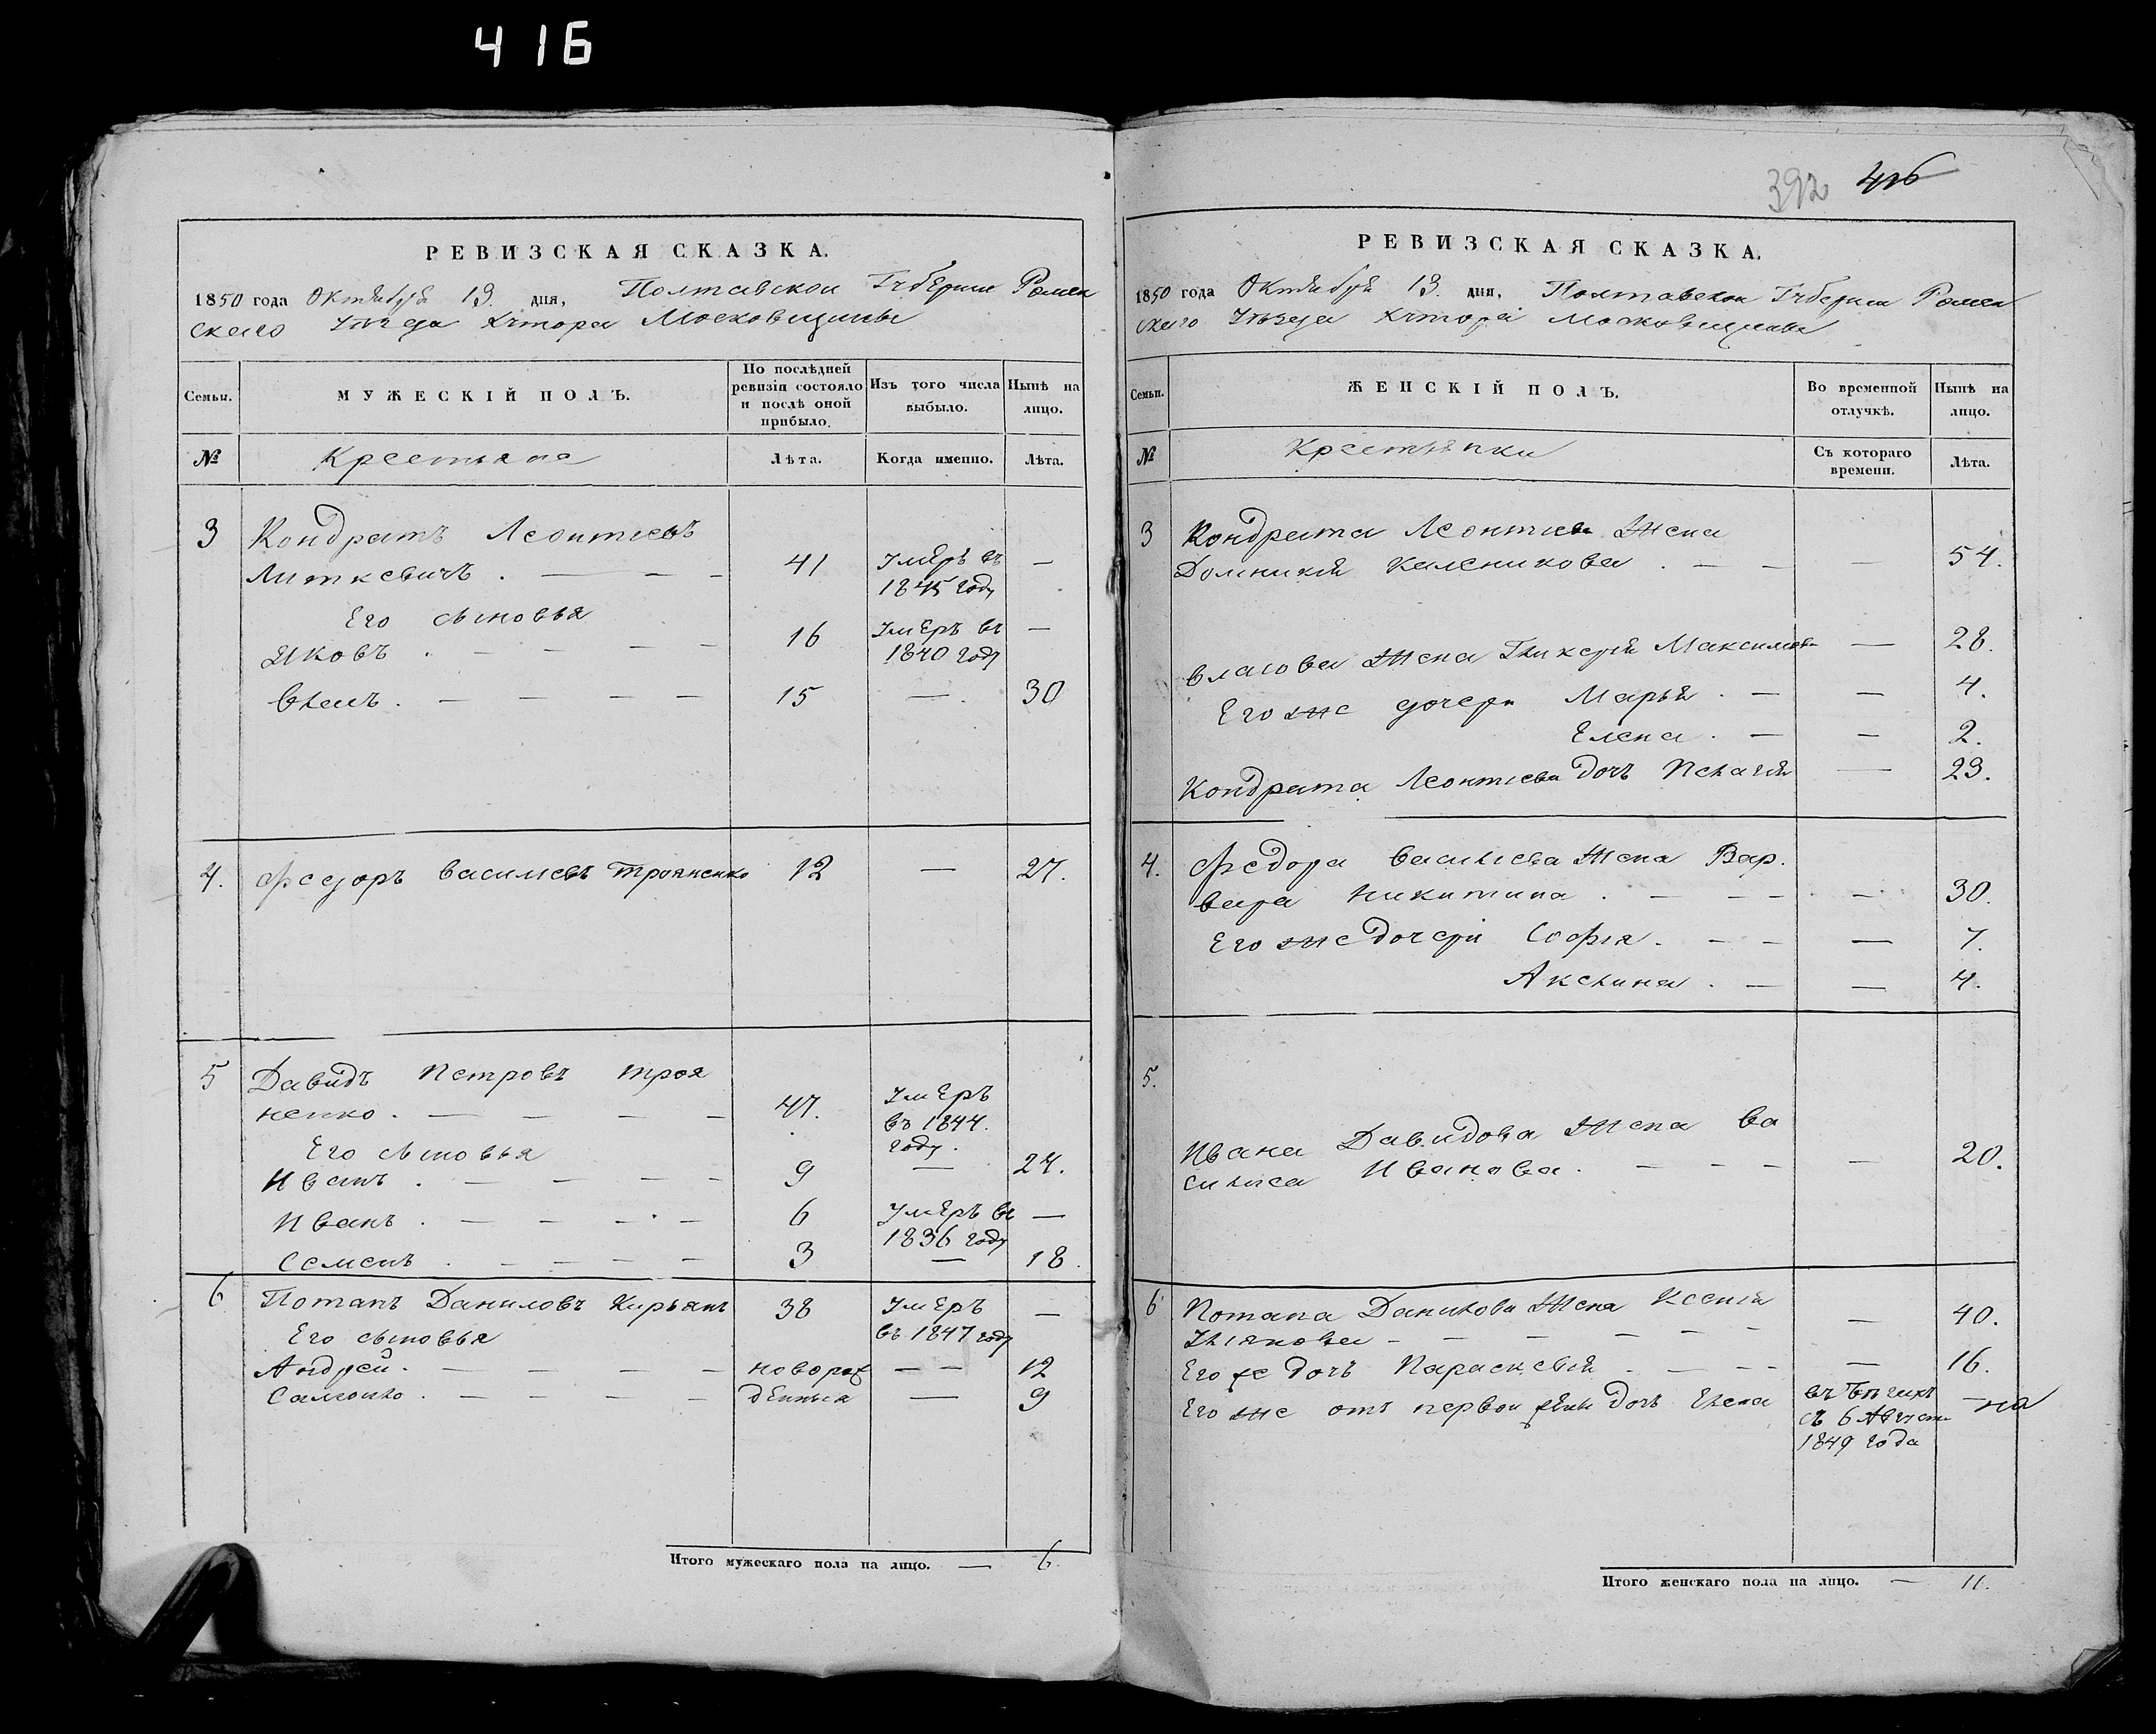 416
РЕВИЗСКАЯ СКАЗКА.
1850 года Октября 13. дня, Полтавской Губернии Ромен
скаго Уезда Хутора Московщины
Семьи.
МУЖЕСКІЙ ПОЛЪ.
По послѣдней ревизіи состояло и послѣ оной прибыло.
Изъ того числа выбыло.
Нынѣ на лицо.
№
Крестьяне
Лѣта.
Когда именно.
Лѣта.
3 Кондратъ Леонтиевъ
Литкевичъ . — — — 41 Умеръ въ 1845 году —
Его сыновья
Яковъ . — — — — 16 Умеръ въ 1840 году —
Власъ . — — — — 15 — . 30
4. Федоръ Василиевъ Трояненко 12 — 27.
5 Давидъ Петровъ Троя
ненко . — — — — 47. Умеръ въ 1844. году.
Его сыновья
Иванъ . — — — — 9 — 24.
Иванъ . — — — — 6 Умеръ въ 1836 году —
Семенъ . — — — — 3 — 18.
6 Потапъ Даниловъ Кирьянъ 38 Умеръ въ 1847 году —
Его сыновья
Андрей . — — — — новорож — — 12
Самойло . — — — — денныя — 9
Итого мужескаго пола на лицо. — 6.
392 416
РЕВИЗСКАЯ СКАЗКА.
1850 года Октября 13. дня, Полтавской Губернии Ромен
скаго Уъзда Хутора Московщины
Семьи.
ЖЕНСКІЙ ПОЛЪ.
Во временной отлучкѣ.
Нынѣ на лицо.
№
Крестьянки
Съ котораго времени.
Лѣта.
3 Кондрата Леонтиева Жена
Домникия Каленикова . — — — 54.
Власова Жена Гликерия Максимова — 28.
Его же дочери Марья . — — 4.
Елена . — — 2.
Кондрата Леонтиева дочъ Пелагия — 23.
4. Федора Василиева Жена Вар.
вара Никитина . — — — — 30.
Его же дочери София . — — — 7.
Акслина . — — 4.
5.
Ивана Давидова Жена Ва
силиса Иванова . — — — — 20.
6 Потапа Данилова Жена Ксения
Улянова — — — — — — — 40.
Его же дочъ Параскевия . — — — — 16.
Его же отъ первой жены дочъ Елена въ бегахъ съ 6 Августа 1849 года — на
Итого женскаго пола на лицо. — 11.